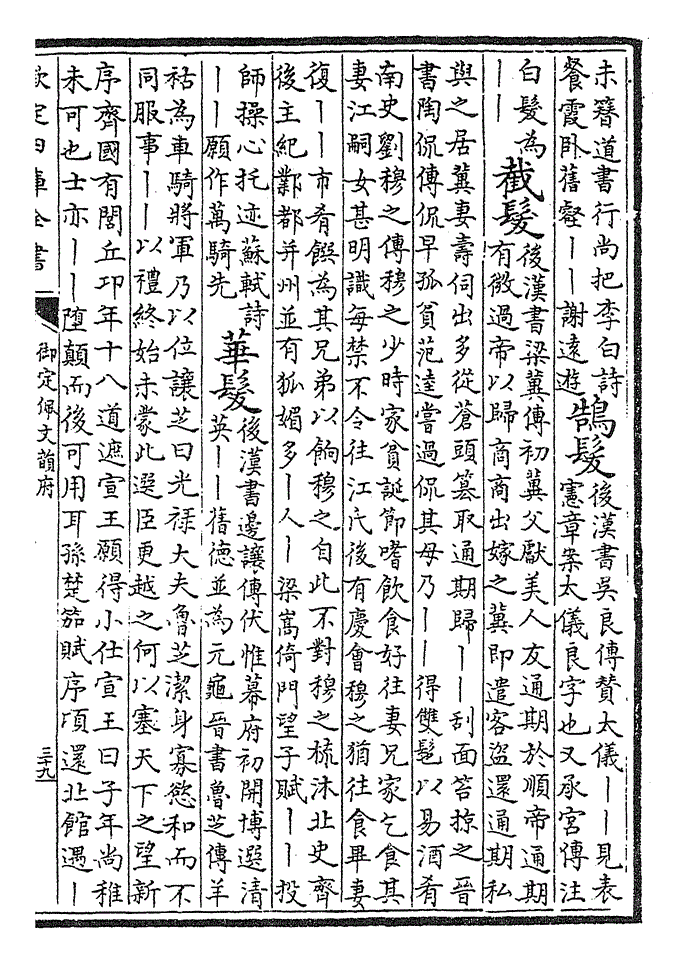 未簪道書行尚把李白詩
餐霞卧舊壑——謝遠遊
鵠髮
後漢書吳良傳贊太儀——見表
憲章案太儀良字也又承宮傳注
白髮為
——
截髮
後漢書梁冀傳初冀父獻美人友通期於順帝通期
有微過帝以歸商商出嫁之冀即遣客盜還通期私
與之居冀妻壽伺出多從蒼頭篡取通期歸——刮面笞掠之晉
書陶侃傳侃早孤貧范逵嘗過侃其母乃——得雙髲以易酒肴
南史劉穆之傳穆之少時家貧誕節嗜飲食好往妻兄家乞食其
妻江嗣女甚明識每禁不令往江氏後有慶會穆之猶往食畢妻
復——市肴饌為其兄弟以餉穆之自此不對穆之梳沐北史齊
後主紀鄴都并州並有狐媚多—人—梁嵩倚門望子賦——投
師操心托迹蘇軾詩
——願作萬騎先
華髮
後漢書邊讓傳伏惟幕府初開博選清
英——舊德並為元龜晉書魯芝傳羊
祜為車騎將軍乃以位讓芝曰光祿大夫魯芝潔身寡慾和而不
同服事——以禮終始未蒙此選臣更越之何以塞天下之望新
序齊國有閭丘卭年十八道遮宣王願得小仕宣王曰子年尚稚
未可也士亦——堕顛而後可用耳孫楚笳賦序頃還北館遇—
欽定四庫全書
御定佩文韻府
三十九